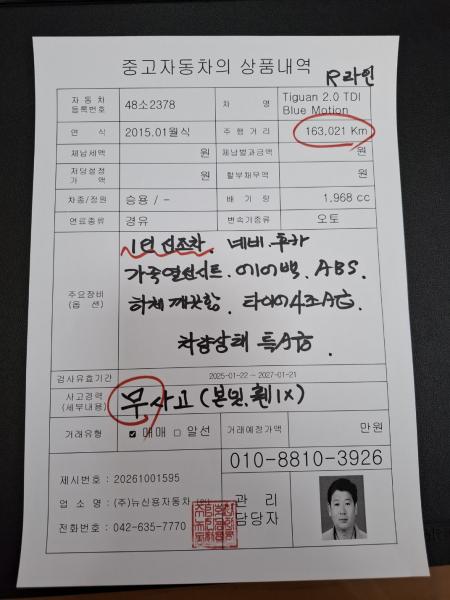 중고자동차의 상품내역
R라인
자동차등록번호 48소2378 차명 Tiguan 2.0 TDI Blue Motion
연식 2015.01월식 주행거리 163,021 Km
체납세액 원 체납범과금액 원
저당설정가액 원 할부채무액 원
차종/정원 승용 / - 배기량 1,968 cc
연료종류 경유 변속기종류 오토
주요장비(옵션)
1인 신조차. 네비. 후카
가죽열선시트. 에어백. ABS.
하체 깨끗함. 타이어4조A급
차량상태 특A급.
검사유효기간 2025-01-22 ~ 2027-01-21
사고경력(세부내용) 무사고 (본넷.휀1X)
거래유형 매매 알선 거래예정가액 만원
010-8810-3926
제시번호 : 20261001595
업소명 : (주)뉴신용자동차 (인)
전화번호 : 042-635-7770
관리담당자